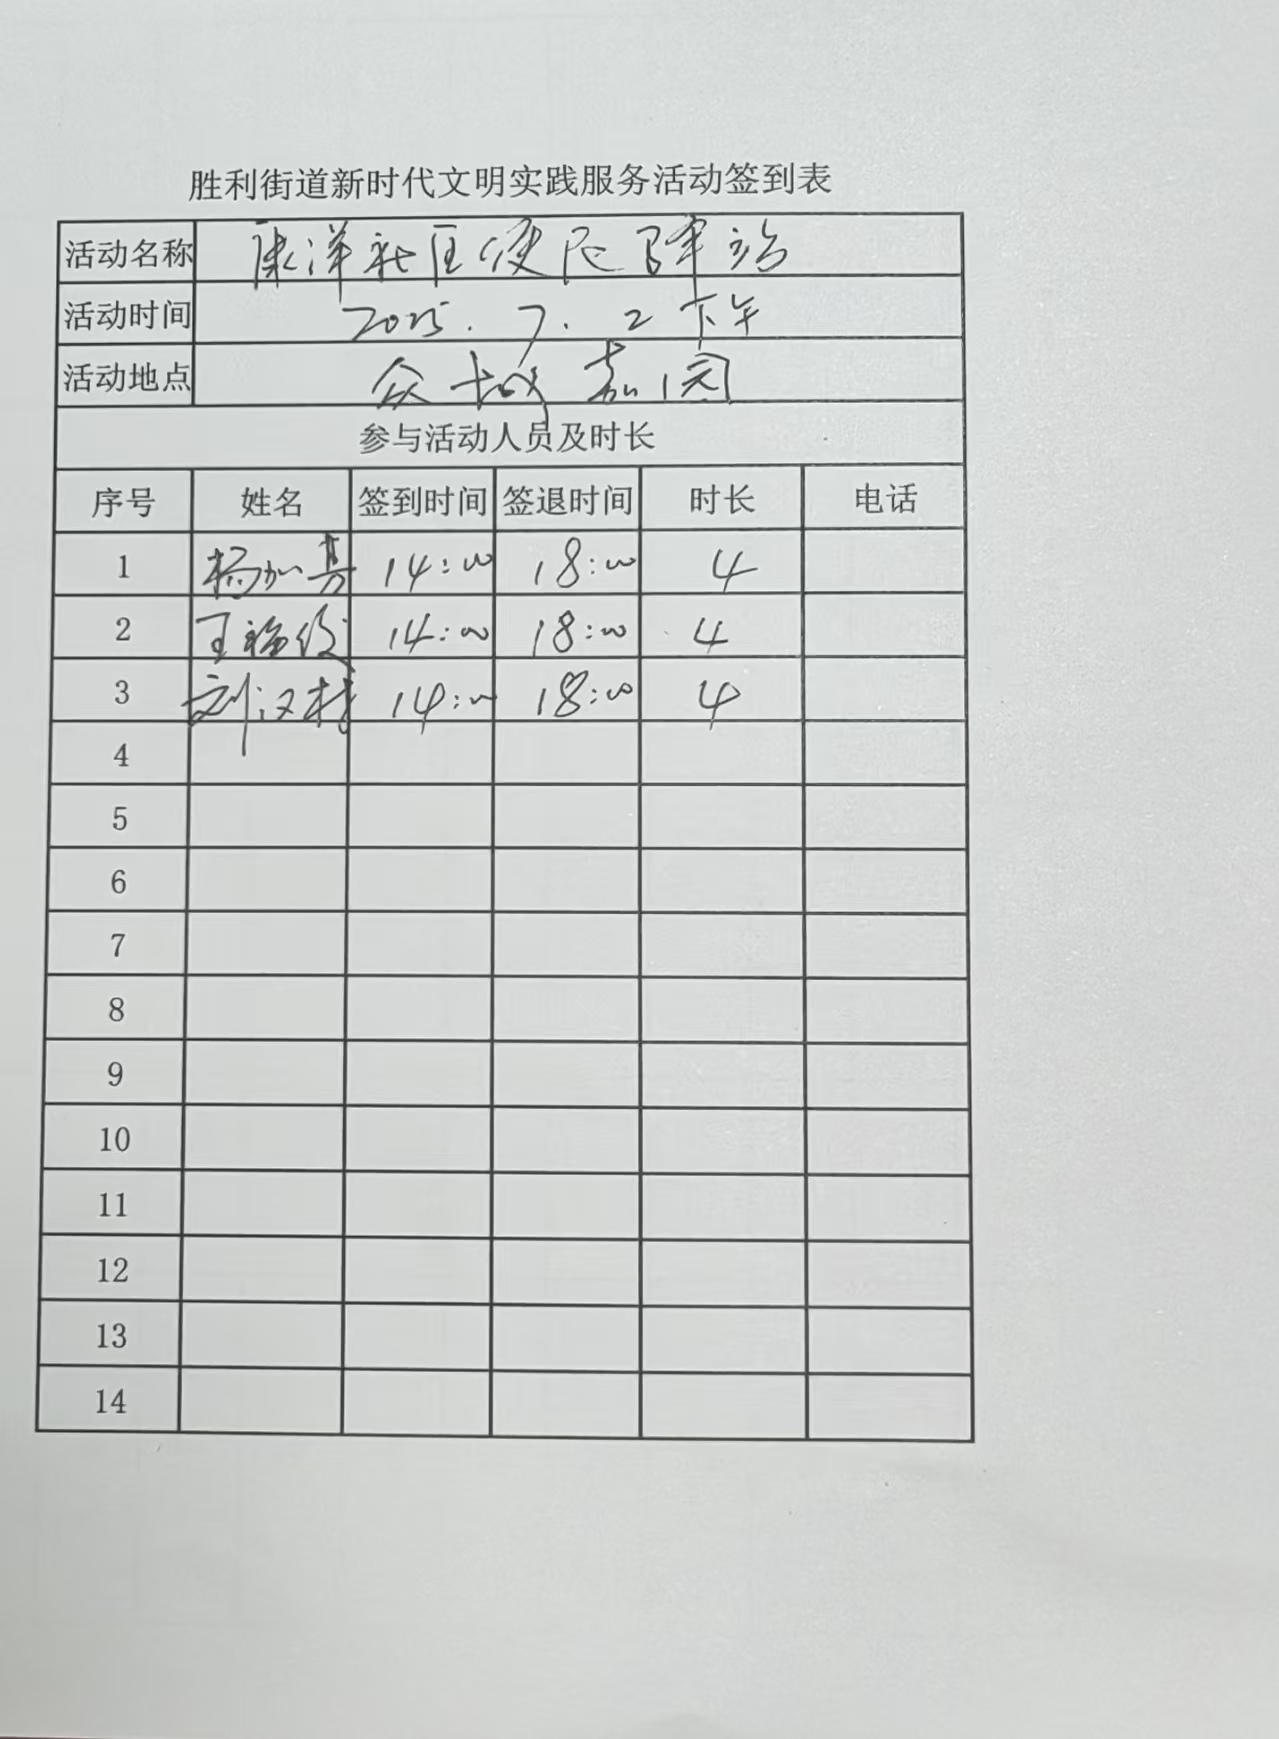 胜利街道新时代文明实践服务活动签到表
活动名称 康洋社区便民驿站
活动时间 2025.7.2下午
活动地点 众城嘉园
参与活动人员及时长
序号 姓名 签到时间 签退时间 时长 电话
1 杨加 14:00 18:00 4
2 王福俊 14:00 18:00 4
3 刘汉村 14:00 18:00 4
4
5
6
7
8
9
10
11
12
13
14